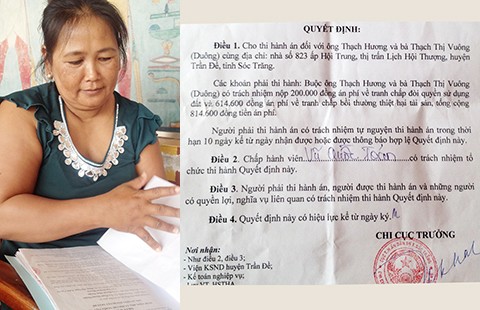 QUYẾT ĐỊNH:
Điều 1. Cho thi hành án đối với ông Thạch Hương và bà Thạch Thị Vuông
(Duông) cùng địa chỉ: nhà số 823 ấp Hội Trung, thị trấn Lịch Hội Thượng, huyện
Trần Đề, tỉnh Sóc Trăng.
Các khoản phải thi hành: Buộc ông Thạch Hương và bà Thạch Thị Vuông
(Duông) có trách nhiệm nộp 200.000 đồng án phí về tranh chấp đòi quyền sử dụng
đất và 614,600 đồng án phí về tranh chấp bồi thường thiệt hại tài sản, tổng cộng
814.600 đồng tiền án phí.
Người phải thi hành án có trách nhiệm tự nguyện thi hành án trong thời
hạn 10 ngày kể từ ngày nhận được hoặc được thông báo hợp lệ Quyết định này.
Điều 2. Chấp hành viên Vũ Quốc Toản có trách nhiệm tổ
chức thi hành Quyết định này.
Điều 3. Người phải thi hành án, người được thi hành án và những người
có quyền lợi, nghĩa vụ liên quan có trách nhiệm thi hành Quyết định này.
Điều 4. Quyết định này có hiệu lực kể từ ngày ký.
CHI CỤC TRƯỞNG
Nơi nhận:
- Như điều 2, điều 3;
- Viện KSND huyện Trần Đề;
- Kế toán nghiệp vụ;
- Lưu VT, HSTHA